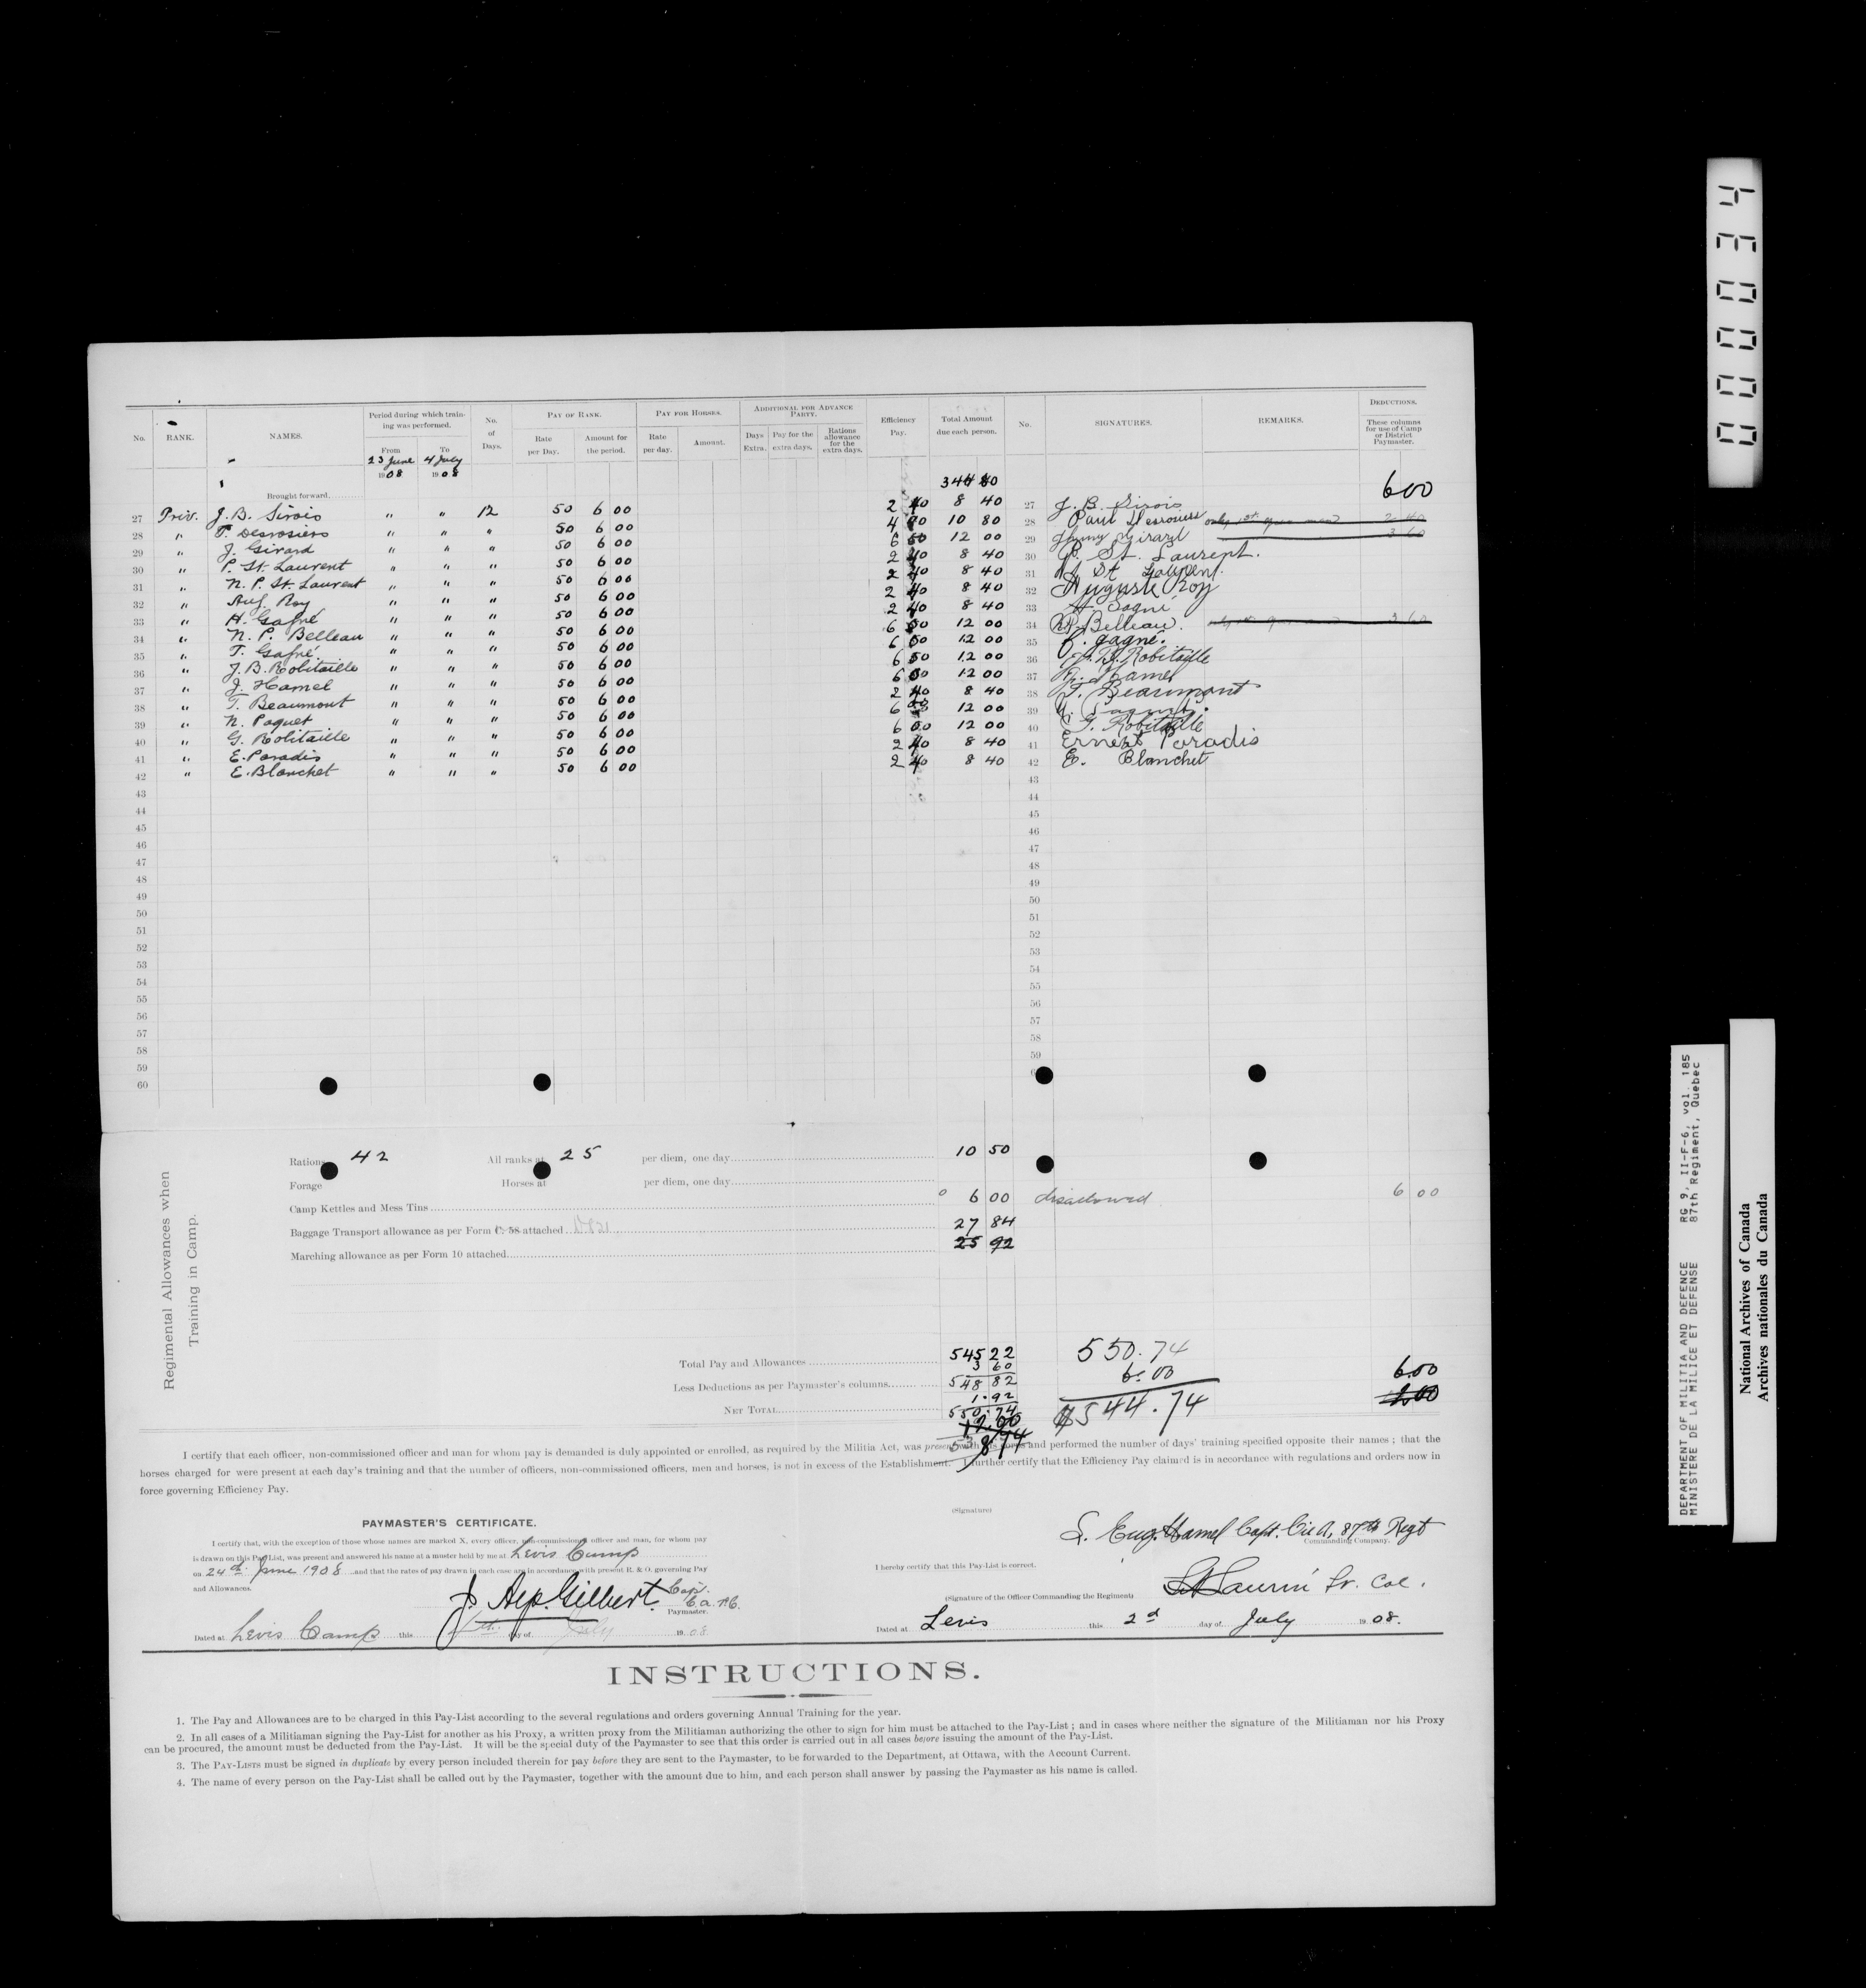 No. RANK. NAMES. Period during which training was performed. No. of Days. PAY OF RANK. PAY FOR HORSES. ADDITIONAL FOR ADVANCE PARTY. Efficiency Pay. Total Amount due each person. No. SIGNATURES. REMARKS. DEDUCTIONS.
From To Rate per Day. Amount for the period. Rate per day. Amount. Days Extra. Pay for the extra days. Rations allowance for the extra days. These columns for use of Camp or District Paymaster.
23 June 1908 4 July 1908
Brought forward 600
27 Priv. J. B. Sirois " " 12 50 6 00 2 40 8 40 27 J. B. Sirois
28 " P. Desrosiers " " " 50 6 00 10 80 28 Paul Desrosiers 2 40
29 " J. Girard " " " 50 6 00 12 00 29 Girard 3 60
30 " P. St. Laurent " " " 50 6 00 2 40 8 40 30 P. St. Laurent.
31 " N. P. St. Laurent " " " 50 6 00 2 40 8 40 31 St Laurent
32 " Aug. Roy " " " 50 6 00 2 40 8 40 32 Auguste Roy
33 " H. Gagné " " " 50 6 00 2 40 8 40 33 H. Gagné
34 " N. P. Belleau " " " 50 6 00 6 00 12 00 34 N.P. Belleau. 3 60
35 " T. Gagné " " " 50 6 00 6 00 12 00 35 gagné.
36 " J. B. Robitaille " " " 50 6 00 6 00 12 00 36 J. B. Robitaille
37 " J. Hamel " " " 50 6 00 6 00 12 00 37 Hamel
38 " T. Beaumont " " " 50 6 00 2 40 8 40 38 T. Beaumont
39 " N. Paquet " " " 50 6 00 6 00 12 00 39 Paquet
40 " G. Robitaille " " " 50 6 00 6 00 12 00 40 G. Robitaille
41 " E. Paradis " " " 50 6 00 2 40 8 40 41 Ernest Paradis
42 " E. Blanchet " " " 50 6 00 2 40 8 40 42 E. Blanchet
43 43
44 44
45 45
46 46
47 47
48 48
49 49
50 50
51 51
52 52
53 53
54 54
55 55
56 56
57 57
58 58
59 59
60
Regimental Allowances when Training in Camp.
Rations 42 All ranks at 25 per diem, one day 10 50
Forage Horses at per diem, one day
Camp Kettles and Mess Tins 6 00 disallowed 6 00
Baggage Transport allowance as per Form C. 58 attached 27 84
Marching allowance as per Form 10 attached 25 92
Total Pay and Allowances 545 22 550.74
3 60 6.00 6.00
Less Deductions as per Paymaster's columns 548 82
1.92 $544.74
NET TOTAL 550.74
I certify that each officer, non-commissioned officer and man for whom pay is demanded is duly appointed or enrolled, as required by the Militia Act, was present with his corps and performed the number of days' training specified opposite their names; that the
horses charged for were present at each day's training and that the number of officers, non-commissioned officers, men and horses, is not in excess of the Establishment. I further certify that the Efficiency Pay claimed is in accordance with regulations and orders now in
force governing Efficiency Pay.
(Signature) L. Eug. Hamel Capt. Cie A, 87th Regt
Commanding Company.
PAYMASTER'S CERTIFICATE.
I certify that, with the exception of those whose names are marked X, every officer, non-commissioned officer and man, for whom pay
is drawn on this Pay-List, was present and answered his name at a muster held by me at Levis Camp
on 24th June 1908 and that the rates of pay drawn in each case are in accordance with present R. & O. governing Pay
and Allowances.
J. Alp. Gilbert Capt. C.A.P.C.
Paymaster.
Dated at Levis Camp this day of July 1908
I hereby certify that this Pay-List is correct.
(Signature of the Officer Commanding the Regiment) Lt. Col.
Dated at Levis this 2d day of July 1908.
INSTRUCTIONS.
1. The Pay and Allowances are to be charged in this Pay-List according to the several regulations and orders governing Annual Training for the year.
2. In all cases of a Militiaman signing the Pay-List for another as his Proxy, a written proxy from the Militiaman authorizing the other to sign for him must be attached to the Pay-List; and in cases where neither the signature of the Militiaman nor his Proxy
can be procured, the amount must be deducted from the Pay-List. It will be the special duty of the Paymaster to see that this order is carried out in all cases before issuing the amount of the Pay-List.
3. The PAY-LISTS must be signed in duplicate by every person included therein for pay before they are sent to the Paymaster, to be forwarded to the Department, at Ottawa, with the Account Current.
4. The name of every person on the Pay-List shall be called out by the Paymaster, together with the amount due to him, and each person shall answer by passing the Paymaster as his name is called.
DEPARTMENT OF MILITIA AND DEFENCE RG 9, II-F-6, vol. 185
MINISTERE DE LA MILICE ET DEFENSE 87th Regiment, Quebec
National Archives of Canada
Archives nationales du Canada